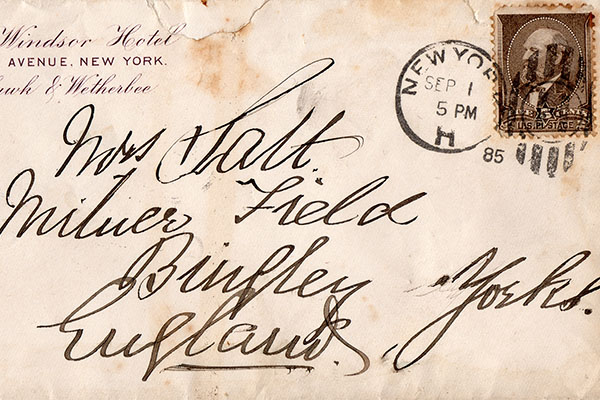 Windsor Hotel
AVENUE, NEW YORK.
& Wetherbee
NEW YORK
SEP 1
5 PM
H
85
U.S. POSTAGE
Mrs Salt.
Milner Field
Bingley Yorks.
England